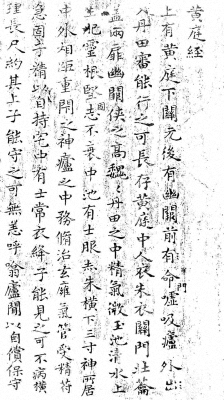 黄庭經
上有黄庭下關元後有幽闕前有命嘘吸廬外出
入丹田審能行之可長存黄庭中人衣朱衣關門壮蘥
蓋兩扉幽闕侠之高魏〻丹田之中精氣微玉池清水上
生肥靈根堅志不衰中池有士服赤朱横下三寸神所居
中外相距重閇之神廬之中務脩治玄㢕氣管受精符
急固子精以自持宅中有士常衣絳子能見之可不病横
理長尺約其上子能守之可無恙呼噏廬間以自償保守